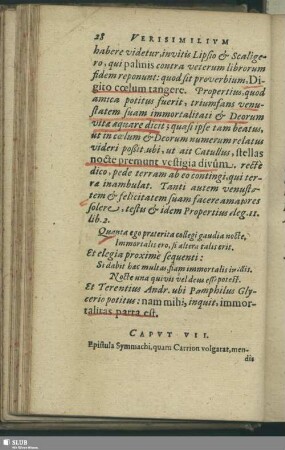 28 VERISIMILIVM
habere videtur, invitis Lipsio & Scalige-
ro, qui palinis contra veterum librorum
fidem reponunt: quod sit proverbium, Di-
gito cœlum tangere. Propertius, quod
amica potitus fuerit, triumfans venu-
statem suam immortalitati & Deorum
vitæ æquare dicit; quasi ipse tam beatus,
ut in cœlum & Deorum numerum relatus
videri possit. ubi, ut ait Catullus, stellas
nocte premunt vestigia divûm. recte
dico, pede terram ab eo contingi, qui ter-
ra inambulat. Tanti autem venustа-
tem & felicitatem suam facere amatores
solere, testis & idem Propertius eleg. 11.
lib. 2.
Quanta ego præterita collegi gaudia nocte,
Immortalis ero, si altera talis erit.
Et elegia proxime sequenti:
Si dabit hæc multas, fiam immortalis in illis.
Nocte una quivis vel deus esse potest.
Et Terentius Andr. ubi Pamphilus Gly-
cerio potitus: nam mihi, inquit, immor-
talitas parta est.
CAPVT VII.
Epistula Symmachi, quam Carrion volgarat, men-
dis
SLUB